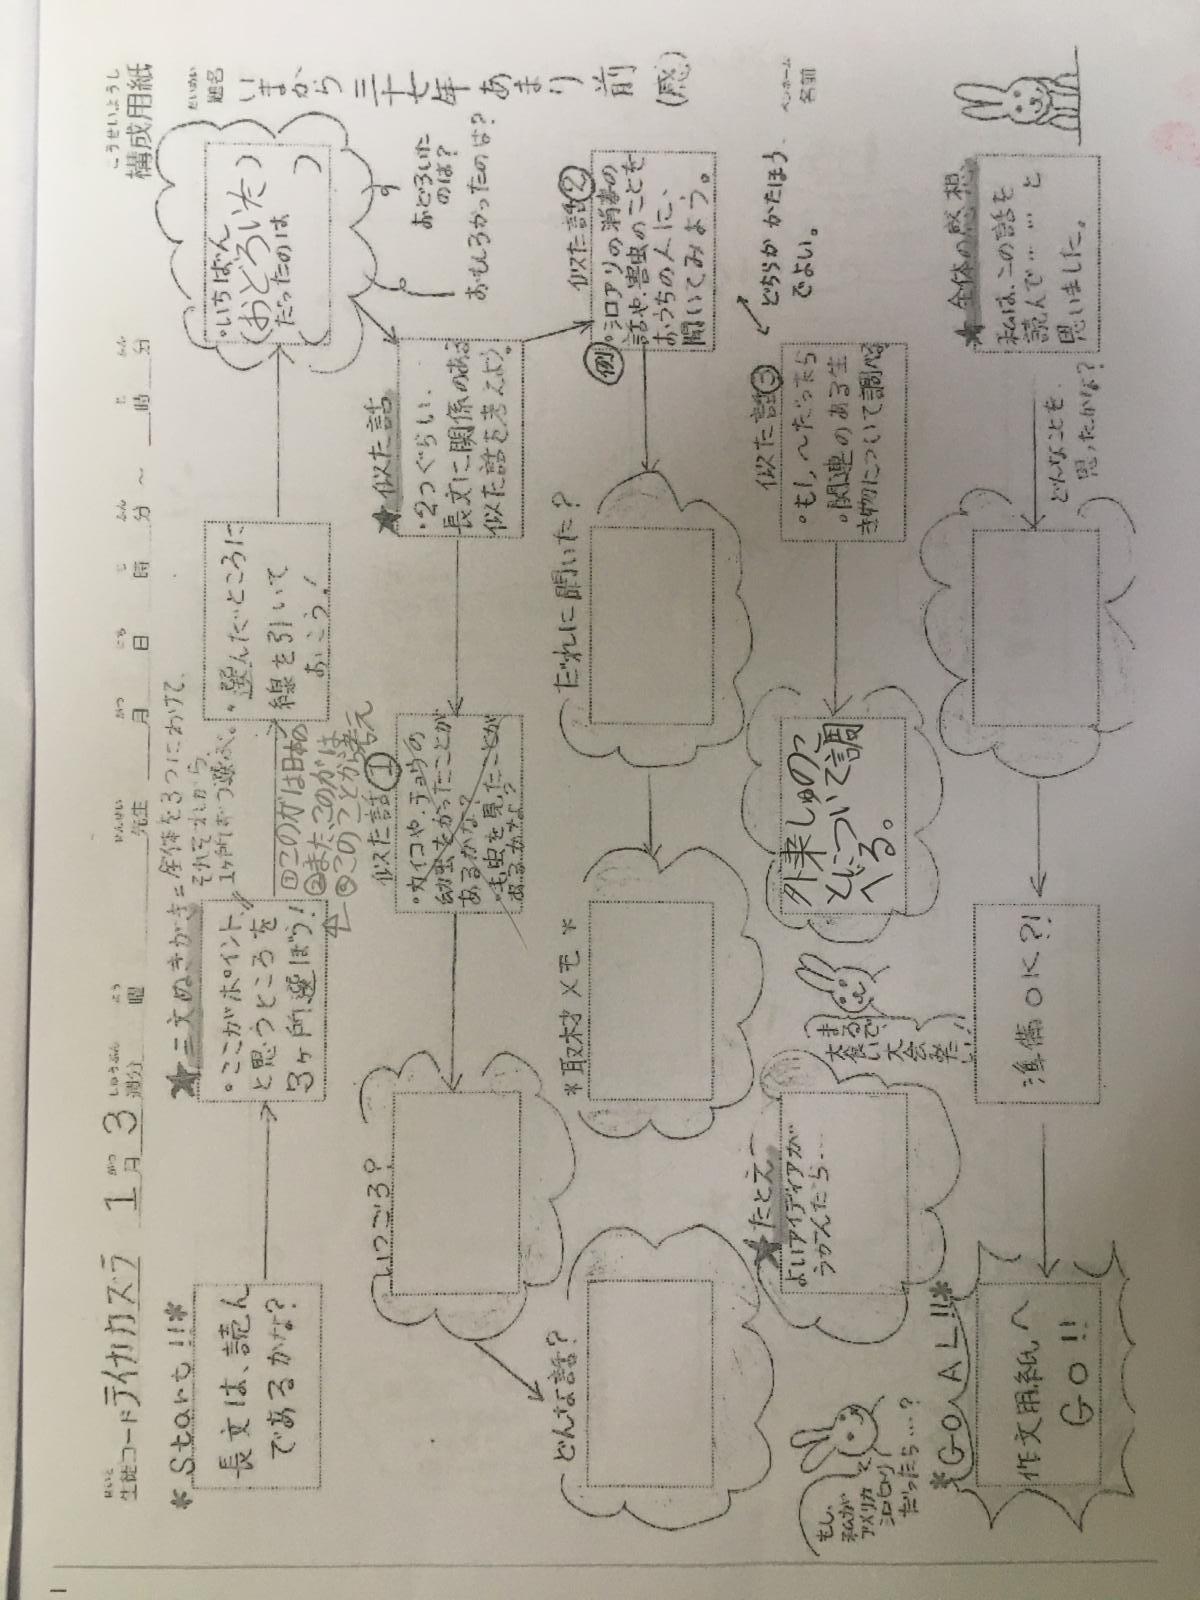 こうせいようし
構成用紙
せいと
生徒コード テイカカズラ 1月 がつ 3週分 しゅうぶん 曜 よう 先生 せんせい 月 がつ 日 にち 時 じ 分 ふん ～ 時 じ 分 ふん
だいめい
題名
いまから三十七年あまり前(感)
ペンネーム
名前
*Start!!*
長文は、読ん
であるかな?
★三文ぬきがき=全体を3つにわけて、
それぞれから、
1ヶ所ずつ選ぶ。
・ここがポイント!
と思うところを
3ヶ所選ぼう!
①このガは日本の
②また、このガは
③このことから考え
・選んだところに
線を引いて
おこう!
・いちばん
(おどろいた)
だったのは
( )
おどろいた
のは?
おもしろかったのは?
★似た話
・2つぐらい、
長文に関係のある
似た話を考えよう。
似た話①
・カイコや、チョウの
幼虫をかったことが
あるかな?
・毛虫を見たことが
あるかな?
いつごろ?
どんな話?
似た話②
例
・シロアリの消毒の
話や、害虫のことを
おうちの人に、
聞いてみよう。
だれに聞いた?
*取材メモ*
どちらかかたほう
でよい。
似た話③
・もし、〜だったら
・関連のある生
き物について調べる
外来しゅのこ
とについて調
べる。
★たとえ
よいアイディアが
うかんだら…
まるで、
大食い
大会
みたい!
もし、
私が
アメリカ
シロヒトリ
だったら…?
★全体の感想
私は、この話を
読んで……と
思いました。
どんなことを
思ったかな?
準備OK?!
*GOAL!!*
作文用紙へ
GO!!